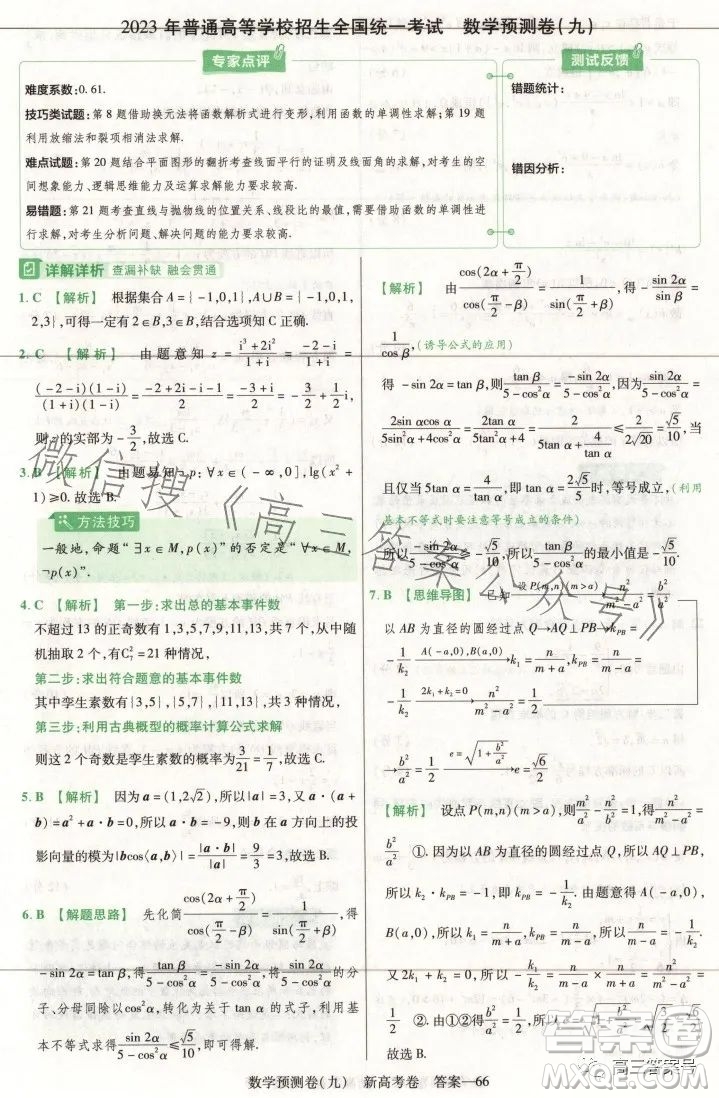 2023 年普通高等学校招生全国统一考试 数学预测卷(九)
专家点评
难度系数:0.61.
技巧类试题:第 8 题借助换元法将函数解析式进行变形,利用函数的单调性求解;第 19 题
利用放缩法和裂项相消法求解.
难点试题:第 20 题结合平面图形的翻折考查线面平行的证明及线面角的求解,对考生的空
间想象能力、逻辑思维能力及运算求解能力要求较高.
易错题:第 21 题考查直线与抛物线的位置关系、线段比的最值,需要借助函数的单调性进
行求解,对考生分析问题、解决问题的能力要求较高.
测试反馈
错题统计:
错因分析:
详解详析 查漏补缺 融会贯通
1. C 【解析】 根据集合 A={-1,0,1},A∪B={-1,0,1,
2,3},可得一定有 2∈B,3∈B,结合选项知 C 正确.
2. C 【解析】 由题意知 z=(i³+2i²)/(1+i)=(-2-i)/(1+i)=
(-2-i)(1-i)/((1+i)(1-i))=(-2+2i-i-1)/2=(-3+i)/2=-3/2+1/2 i,
则 z 的实部为-3/2,故选 C.
3. B 【解析】 由题易知¬p:∀x∈(-∞,0],lg(x²+
1)≥0.故选 B.
方法技巧
一般地,命题“∃x∈M,p(x)”的否定是“∀x∈M,
¬p(x)”.
4. C 【解析】 第一步:求出总的基本事件数
不超过 13 的正奇数有 1,3,5,7,9,11,13,共 7 个,从中随
机抽取 2 个,有C₇²=21 种情况,
第二步:求出符合题意的基本事件数
其中孪生素数有{3,5},{5,7},{11,13},共 3 种情况,
第三步:利用古典概型的概率计算公式求解
则这 2 个奇数是孪生素数的概率为3/21=1/7,故选 C.
5. B 【解析】 因为 a=(1,2√2),所以|a|=3,因为 a·(a+
b)=a²+a·b=0,所以 a·b=-9,则 b 在 a 方向上的投
影向量的模为|bcos⟨a,b⟩|=|a·b|/|a|=9/3=3,故选 B.
6. B 【解题思路】 先化简cos(2α+π/2)/cos(π/2-β)=1/sin(π/2-β),得
-sin 2α=tan β,所以tan β/(5-cos²α)=-sin 2α/(5-cos²α),将等式右边的分
子、分母同除以cos²α,转化为关于 tan α 的式子,利用基
本不等式求得sin 2α/(5-cos²α)≤√5/10,得解.
【解析】 由cos(2α+π/2)/cos(π/2-β)=1/sin(π/2+β),得-sin 2α/sin β=
1/cos β,(诱导公式的应用)
得 -sin 2α=tan β,所以tan β/(5-cos²α)=-sin 2α/(5-cos²α),因为sin 2α/(5-cos²α)=
2sin αcos α/(5sin²α+4cos²α)=2tan α/(5tan²α+4)=2/(5tan α+4/tan α)≤2/(2√20)=√5/10,当
且仅当 5tan α=4/tan α,即 tan α=2√5/5时,等号成立,(利用
基本不等式时要注意等号成立的条件)
所以-sin 2α/(5-cos²α)≥-√5/10,所以tan β/(5-cos²α)的最小值是-√5/10.
7. B 【思维导图】 已知 设P(m,n)(m>a)→ n²/(m²-a²)=b²/a²
以 AB 为直径的圆经过点 Q→AQ⊥PB→k_PB=
-1/k₂ A(-a,0),B(a,0)→k₁=n/(m+a),k_PB=n/(m-a)=
-1/k₂ 2k₁+k₂=0→n²/(m²-a²)=1/2
→b²/a²=1/2 e=√(1+b²/a²)→e=√6/2
【解析】 设点 P(m,n)(m>a),则m²/a²-n²/b²=1,得n²/(m²-a²)=
b²/a² ①.因为以 AB 为直径的圆经过点 Q,所以 AQ⊥PB,
所以 k₂·k_PB=-1,得 k_PB=-1/k₂.由题意得 A(-a,0),
B(a,0),所以 k₁=n/(m+a),k_PB=n/(m-a),所以n/(m-a)=-1/k₂.
又 2k₁+k₂=0,所以-k₁/k₂=n/(m-a)×n/(m+a)=n²/(m²-a²)=
1/2 ②.由①②得b²/a²=1/2,所以
数学预测卷(九) 新高考卷 答案—66
微信搜《高三答案公众号》
答案圈
高三答案号